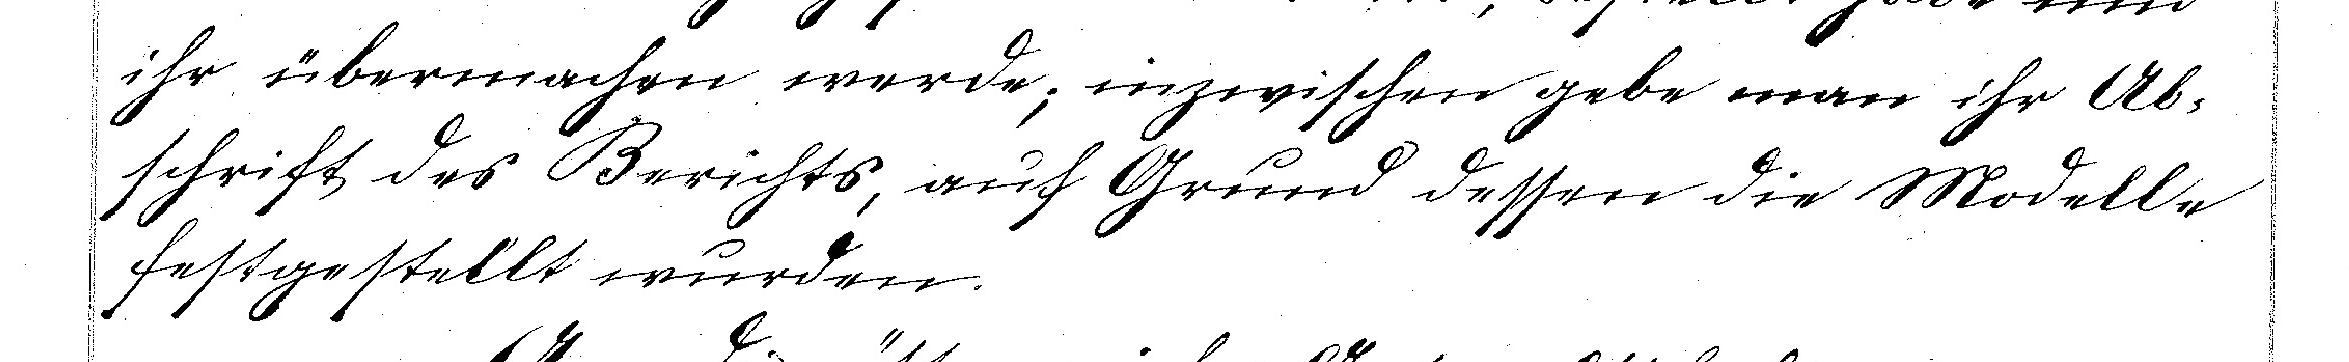 ihr übermachen werde; inzwischen gebe man ihr Ab-
schrift des Berichts, auf Grund dessen die Modelle
festgestellt wurden.